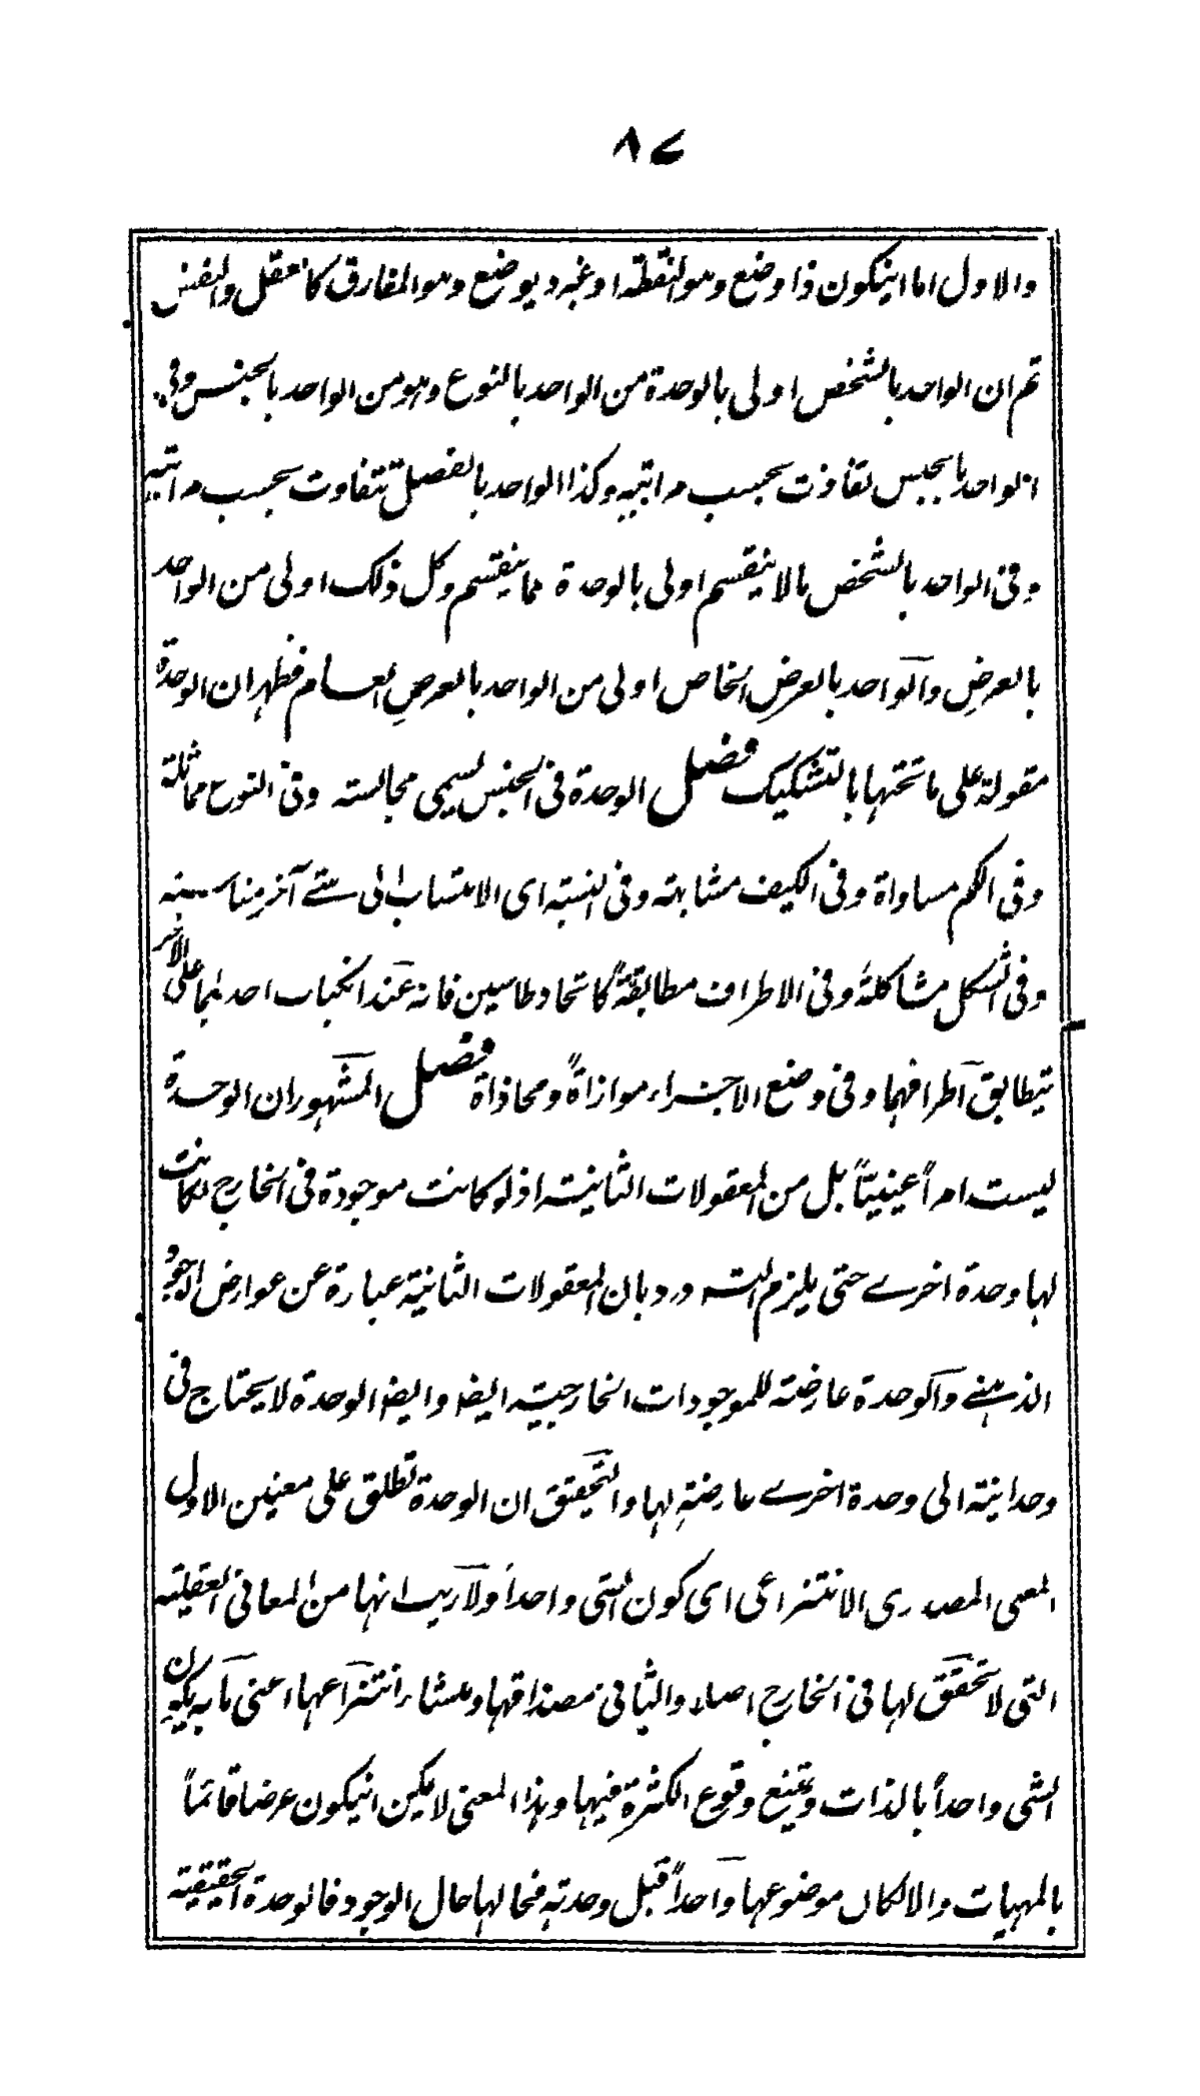 ٨٧
والاول اما انيكون ذا وضع وهو النقطة او غير ذيوضع وهو المفارق كالعقل والنفس
ثم ان الواحد بالشخص اولى بالوحدة من الواحد بالنوع وهو من الواحد بالجنس وفى
الواحد بالجنس تفاوت بحسب مراتبه وكذا الواحد بالفصل تتفاوت بحسب مراتبه
وفى الواحد بالشخص مالا ينقسم اولى بالوحدة مما ينقسم وكل ذلك اولى من الواحد
بالعرض والواحد بالعرض الخاص اولى من الواحد بالعرض العام فظهر ان الوحدة
مقولة على ما تحتها بالتشكيك فصل الوحدة فى الجنس يسمى مجانسته وفى النوع مماثلة
وفى الكم مساواة وفى الكيف مشابهته وفى النسبة اى الانتساب الى شئ آخر مناسبته
وفى الشكل مشاكلة وفى الاطراف مطابقة كاتحاد طاسين فانه عند انكباب احدهما على الآخر
يتطابق اطرافهما وفى وضع الاجزاء موازاةً ومحاذاة فصل المشهور ان الوحدة
ليست امراً عينيّاً بل من المعقولات الثانيته اذ لو كانت موجودة فى الخارج لكانت
لها وحدة اخرى حتى يلزم التسـ ورد بان المعقولات الثانية عبارة عن عوارض الوجود
الذهنى والوحدة عارضته للموجودات الخارجيته ايضا وايضا الوحدة لا يحتاج فى
وحدانيته الى وحدة اخرى عارضة لها والتحقيق ان الوحدة تطلق على معنيين الاول
المعنى المصدرى الانتزاعى اى كون الشى واحداً ولا ريب انها من المعانى العقليته
التى لا تحقق لها فى الخارج اصلا والثانى مصداقها ومنشاء انتزاعها اعنى ما به يكون
الشى واحداً بالذات ويمتنع وقوع الكثرة فيها وبهذا المعنى لا يمكن انيكون عرضا قائماً
بالمهيات والا لكان موضوعها واحداً قبل وحدته فحالها حال الوجود فالوحدة الحقيقيته